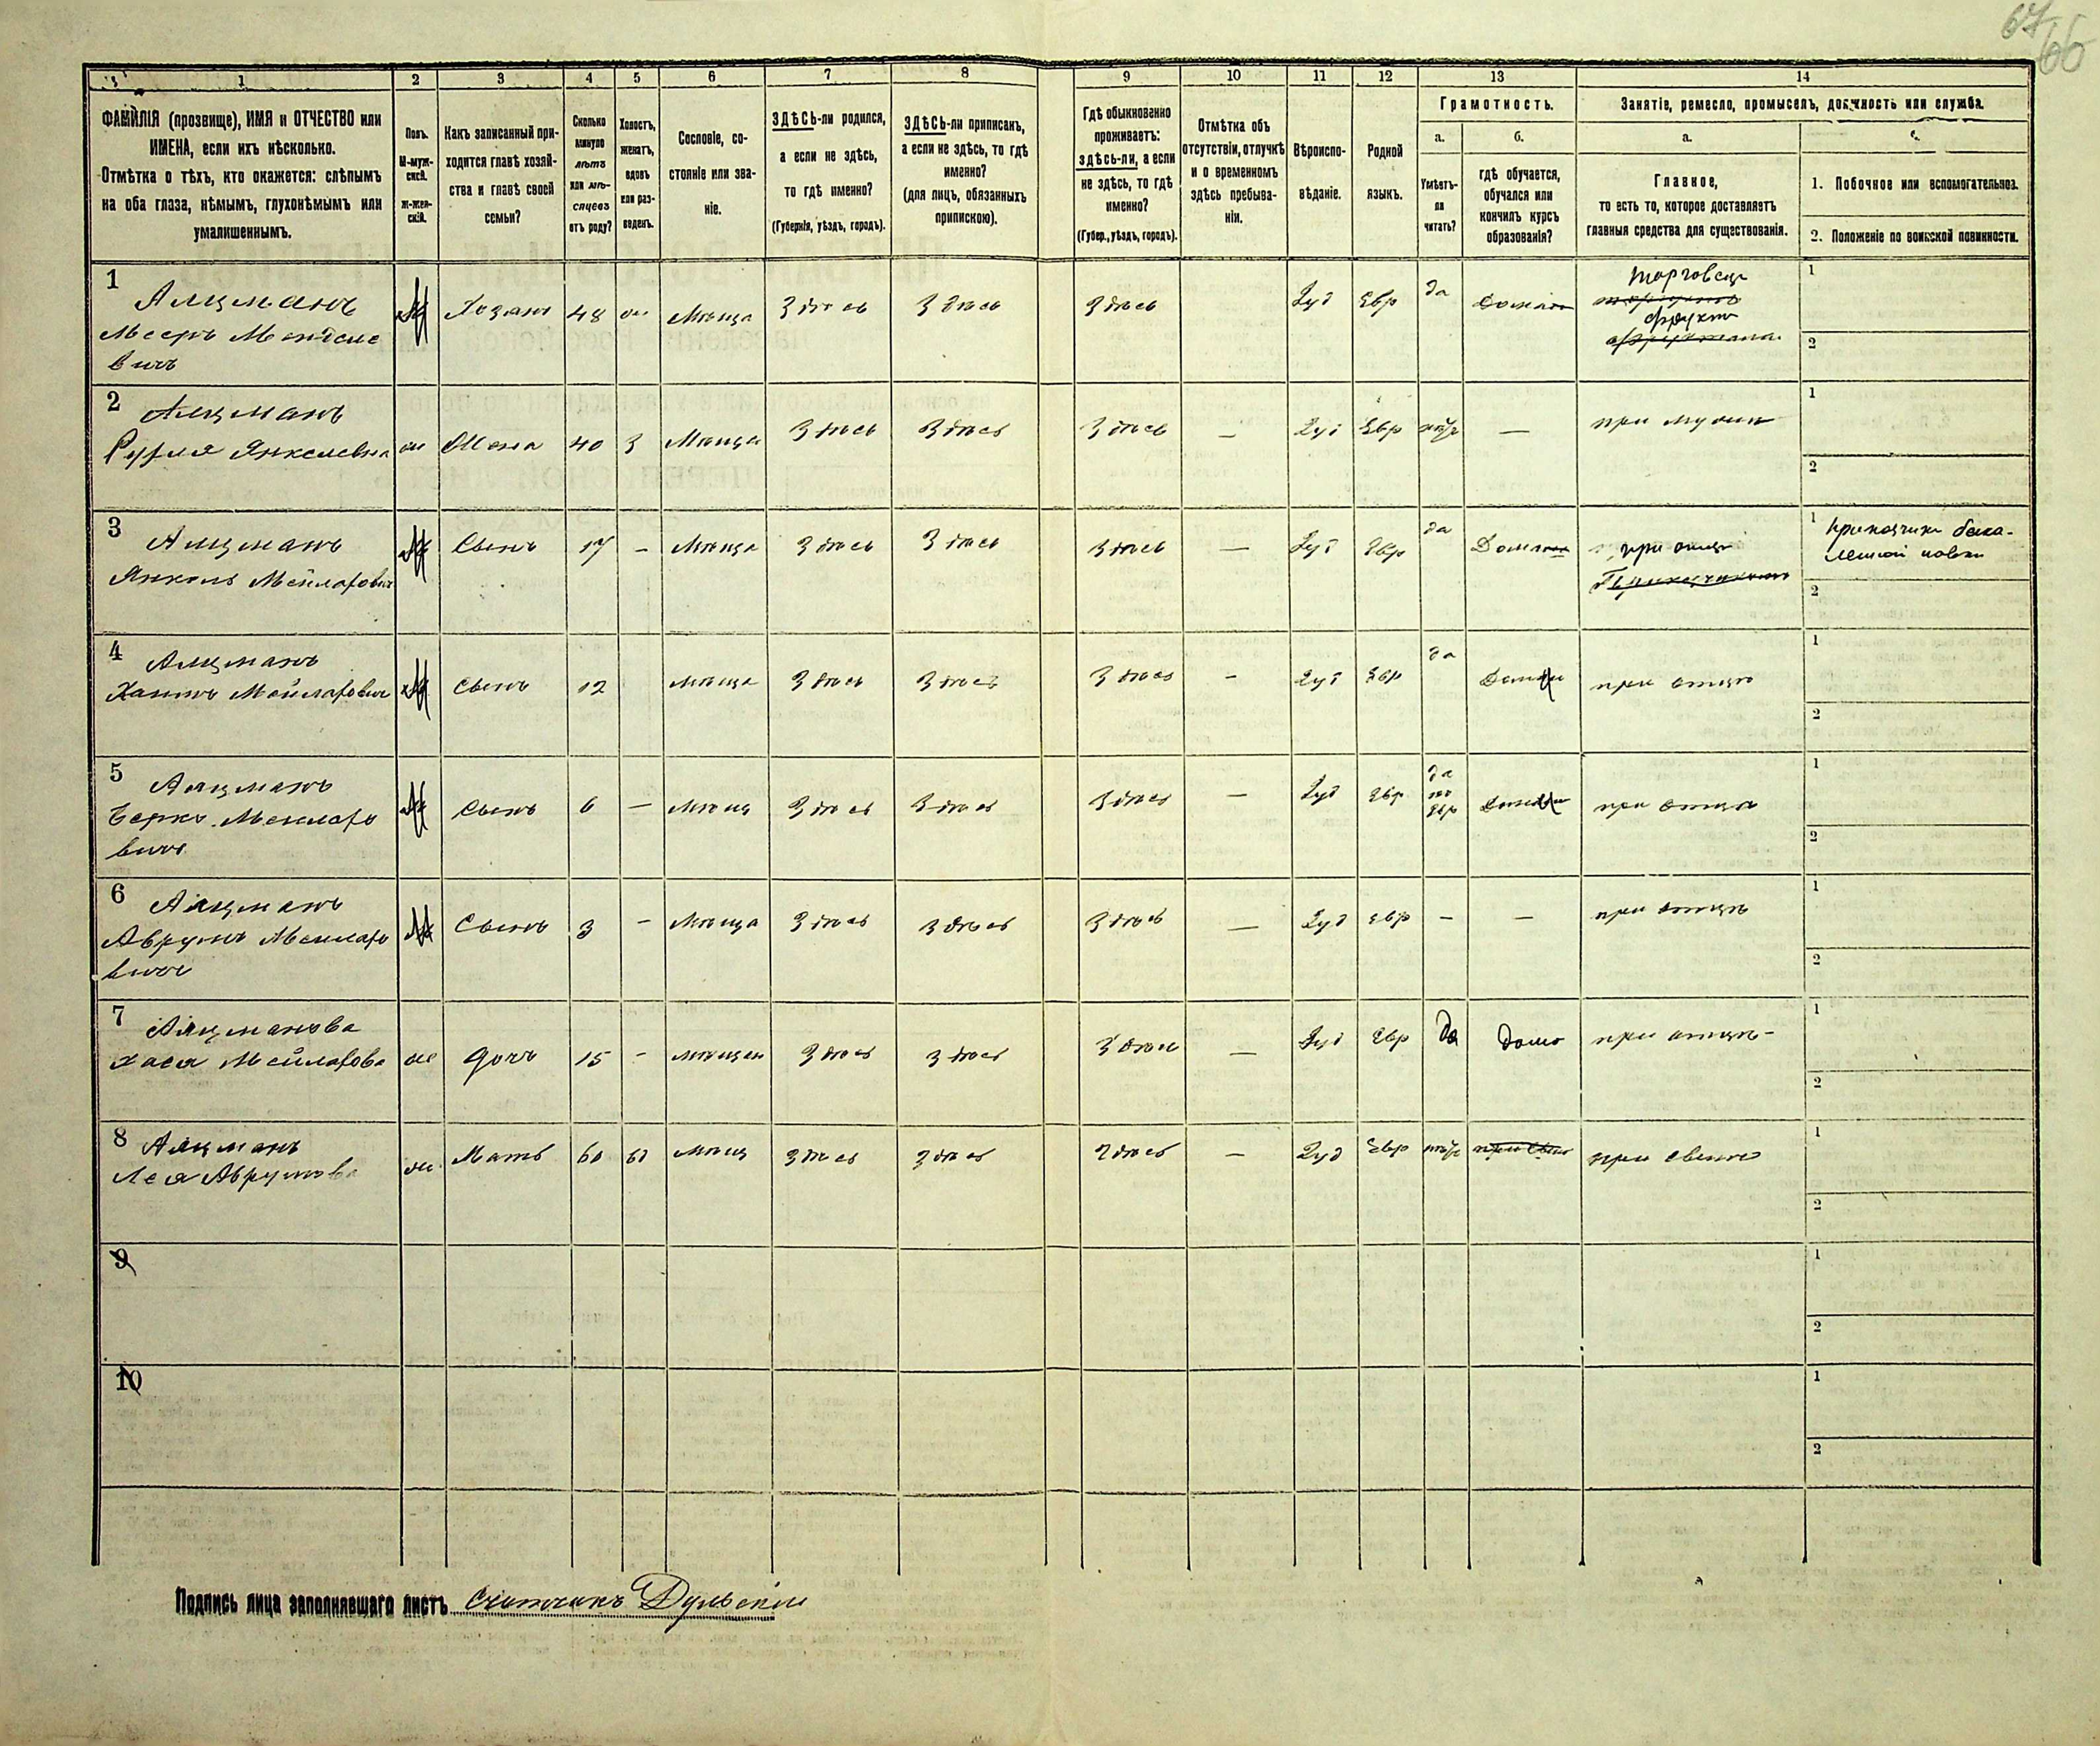 67
66
1
2
3
4
5
6
7
8
9
10
11
12
13
14
ФАМИЛІЯ (прозвище), ИМЯ и ОТЧЕСТВО или
ИМЕНА, если ихъ нѣсколько.
Отмѣтка о тѣхъ, кто окажется: слѣпымъ
на оба глаза, нѣмымъ, глухонѣмымъ или
умалишеннымъ.
Полъ.
М-муж-
ской.
Ж-жен-
скій.
Какъ записанный при-
ходится главѣ хозяй-
ства и главѣ своей
семьи?
Сколько
минуло
лѣтъ
или мѣ-
сяцевъ
отъ роду?
Холостъ,
женатъ,
вдовъ
или раз-
веденъ.
Сословіе, со-
стояніе или зва-
ніе.
ЗДѢСЬ-ли родился,
а если не здѣсь,
то гдѣ именно?
(Губернія, уѣздъ, городъ).
ЗДѢСЬ-ли приписан,
а если не здѣсь, то гдѣ
именно?
(для лицъ, обязанныхъ
припискою).
Гдѣ обыкновенно
проживаетъ:
здѣсь-ли, а если
не здѣсь, то гдѣ
именно?
(Губер., уѣздъ, городъ).
Отмѣтка объ
отсутствіи, отлучкѣ
и о временномъ
здѣсь пребыва-
ніи.
Вѣроиспо-
вѣданіе.
Родной
языкъ.
Грамотность.
а.
Умѣетъ-
ли
читать?
б.
гдѣ обучается,
обучался или
кончилъ курсъ
образованія?
Занятіе, ремесло, промыселъ, должность или служба.
а.
Главное,
то есть то, которое доставляетъ
главныя средства для существованія.
1. Побочное или вспомогательное.
2. Положеніе по воинской повинности.
1 Алцманъ
Хозяинъ 48 Мѣща Здѣсь Здѣсь Здѣсь Іуд Евр да Торговецъ
фрукт
1
2
2 Алцманъ
Рухля Янкелевна Жена 40 3 Мѣща Здѣсь Здѣсь Здѣсь — Іуд Евр — при мужѣ
1
2
3 Алцманъ
Янкель Сынъ 17 – Мѣща Здѣсь Здѣсь Здѣсь — Іуд Евр да при отцѣ
1 приказчикъ бака-
лейной лавки
2
4 Алцманъ
Сынъ 12 мѣща Здѣсь Здѣсь Здѣсь – Іуд Евр да при отцѣ
1
2
5 Алцманъ
Берко Сынъ 6 — мѣщ Здѣсь Здѣсь Здѣсь — Іуд Евр да
по
Евр при отцѣ
вичъ
1
2
6 Алцманъ
Аврумъ Сынъ 3 – Мѣща Здѣсь Здѣсь Здѣсь — Іуд Евр – — при отцѣ
вичъ
1
2
7 Алцманова
Хася дочь 15 – мѣщан Здѣсь Здѣсь Здѣсь — Іуд Евр да дома при отцѣ
1
2
8 Алцманъ
Лея Аврумова Мать 60 мѣщ Здѣсь Здѣсь Здѣсь – Іуд Евр при сынѣ
1
2
9
1
2
10
1
2
Подпись лица заполнявшаго листъ Счетчикъ Дульскій